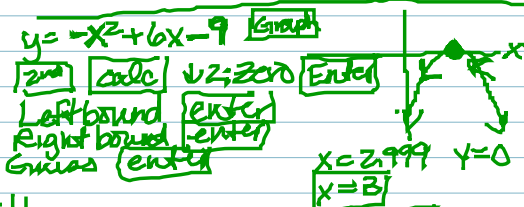 y = -x²+6x-9 Graph
2nd calc ↓2:zero Enter
Left bound enter
Right bound enter
Guess enter
x
x=2.999 y=0
x=3